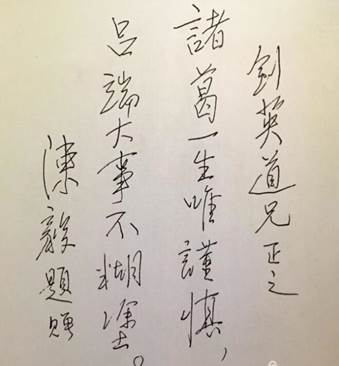 剑英道兄正之
諸葛一生唯謹慎，
吕端大事不糊塗。
陳毅題贈